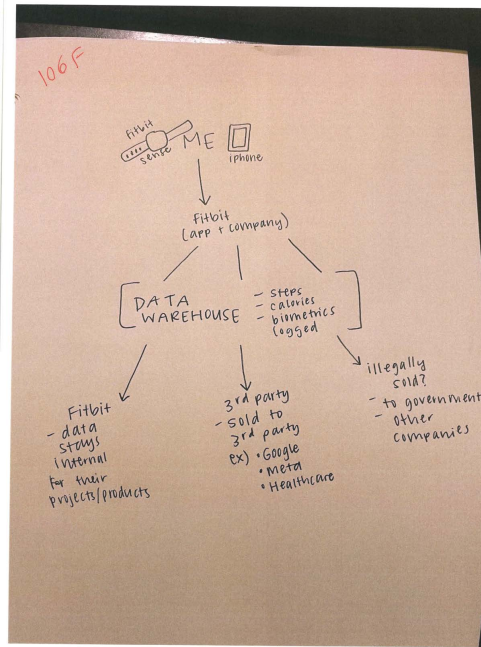 106F
Fitbit
sense
ME
iphone
Fitbit
(app + company)
DATA
WAREHOUSE
- steps
- calories
- biometrics
logged
Fitbit
- data
stays
internal
for their
projects/products
3rd party
- sold to
3rd party
ex) • Google
• Meta
• Healthcare
illegally
sold?
- to government
- other
companies